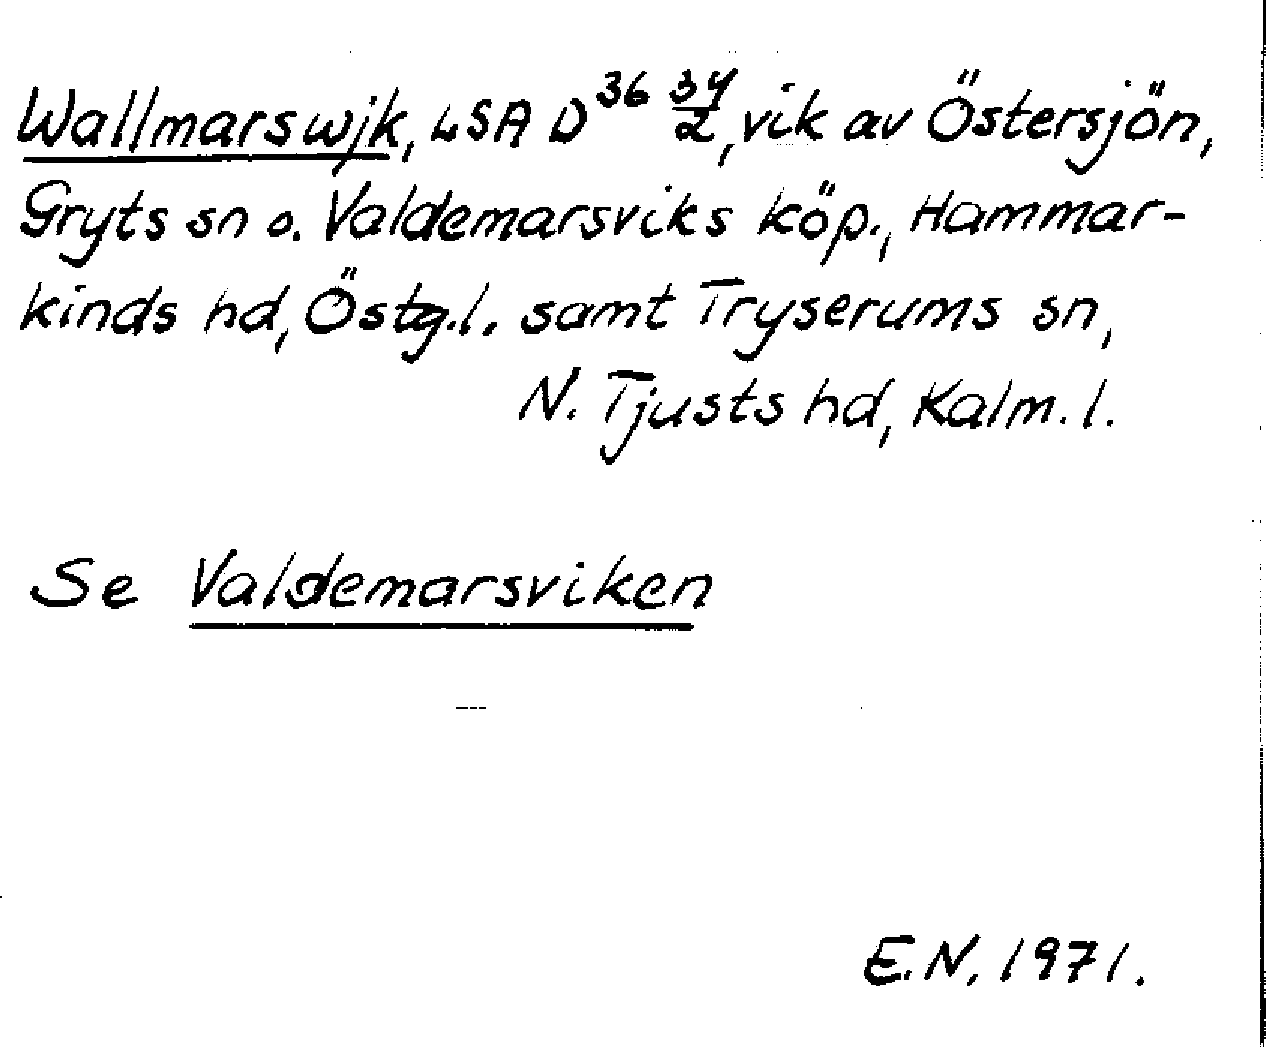 Wallmarswjk, LSA D 36 34/2, vik av Östersjön,
Gryts sn o. Valdemarsviks köp., Hammar-
kinds hd, Östg.l. samt Tryserums sn,
N. Tjusts hd, Kalm. l.
Se Valdemarsviken
E.N. 1971.